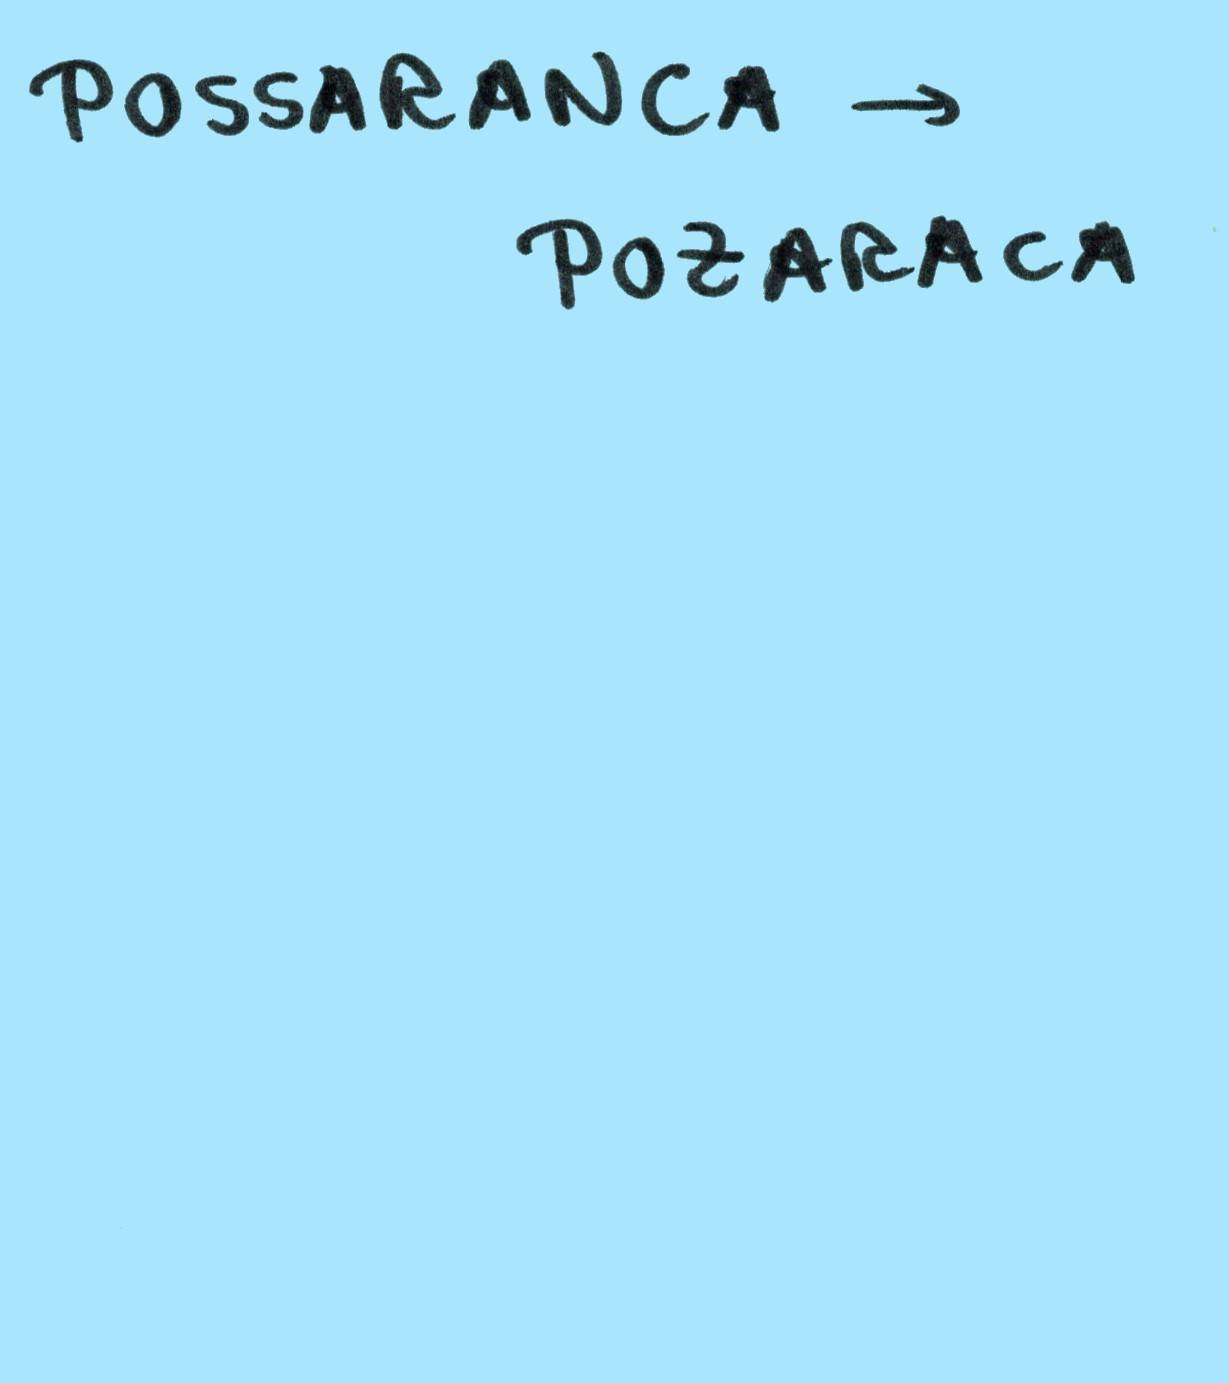 POSSARANCA →
POZARACA